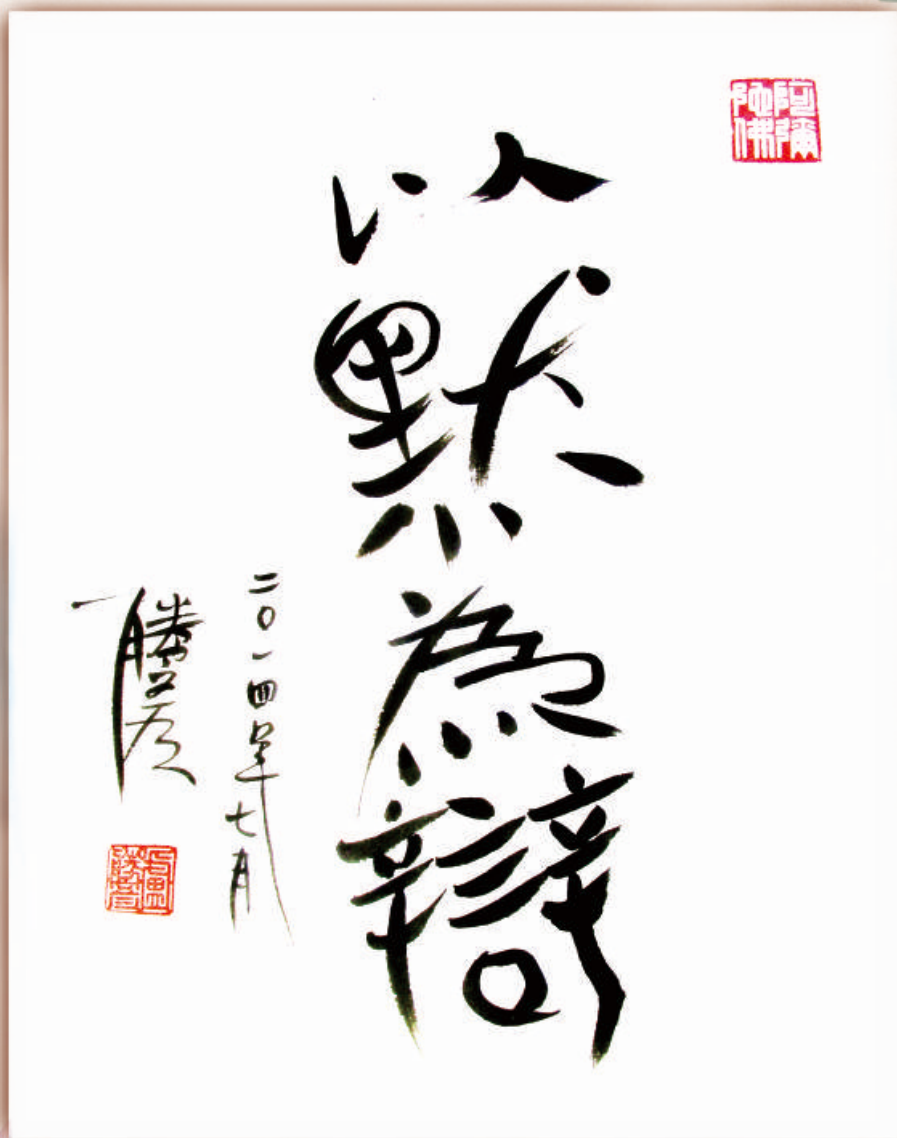 阿彌陀佛
以默為辯
二〇一四年七月